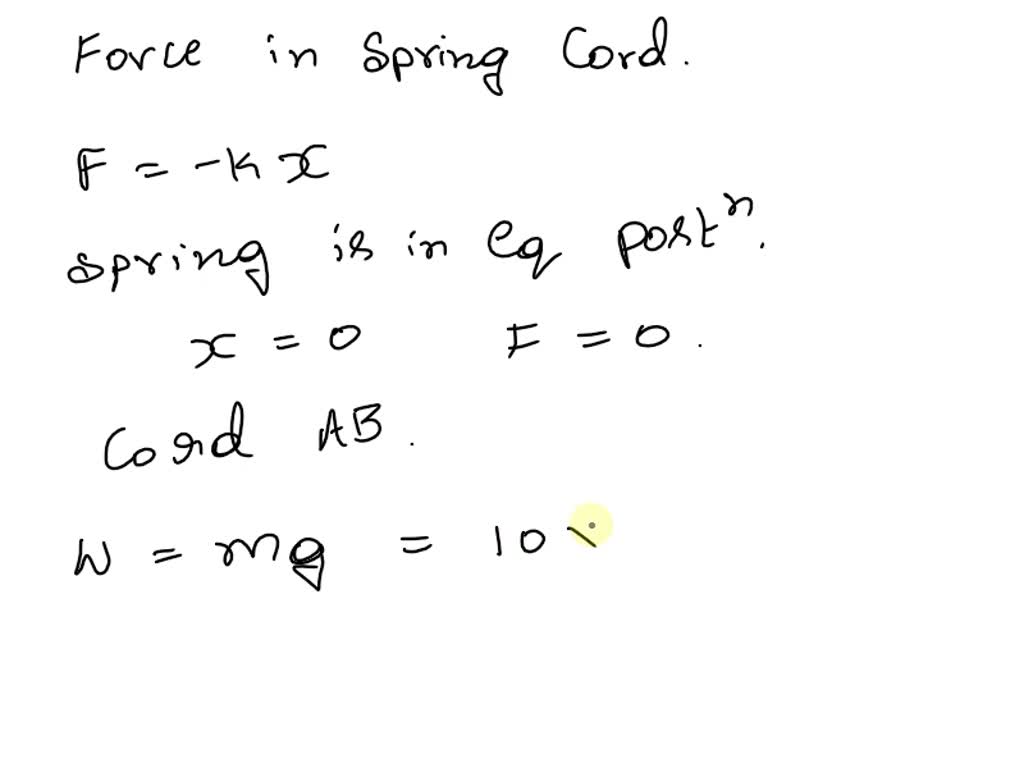 Force in Spring Cord.
F = -K x
Spring is in eq postⁿ.
x = 0 F = 0.
Cord AB.
W = mg = 10